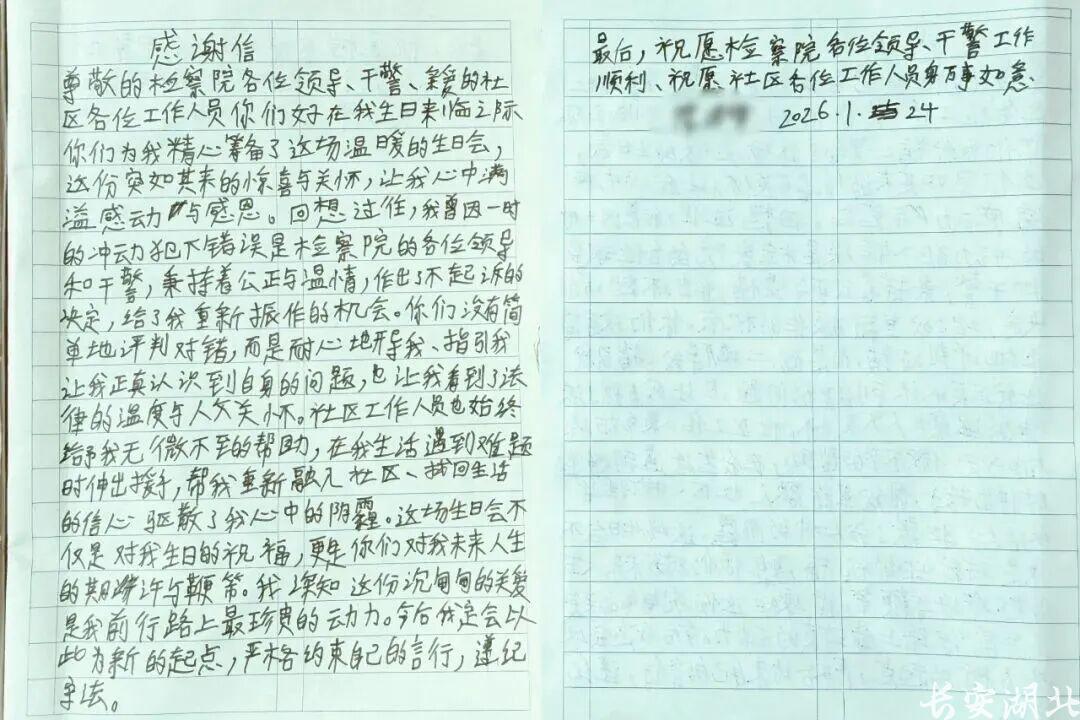 感谢信
尊敬的检察院各位领导、干警、亲爱的社
区各位工作人员你们好在我生日来临之际
你们为我精心筹备了这场温暖的生日会，
这份突如其来的惊喜与关怀，让我心中满
溢感动与感恩。回想过往，我曾因一时
的冲动犯下错误是检察院的各位领导
和干警，秉持着公正与温情，作出了不起诉的
决定，给了我重新振作的机会。你们没有简
单地评判对错，而是耐心地开导我、指引我
让我正真认识到自身的问题，也让我看到了法
律的温度与人文关怀。社区工作人员也始终
给予我无微不至的帮助，在我生活遇到难题
时伸出援手，帮我重新融入社区、找回生活
的信心驱散了我心中的阴霾。这场生日会不
仅是对我生日的祝福，更是你们对我未来人生
的期许与鞭策。我深知这份沉甸甸的关爱
是我前行路上最珍贵的动力。今后我定会以
此为新的起点，严格约束自己的言行，遵纪
守法。
最后，祝愿检察院各位领导、干警工作
顺利、祝愿社区各位工作人员身万事如意
2026.1.24
长安湖北